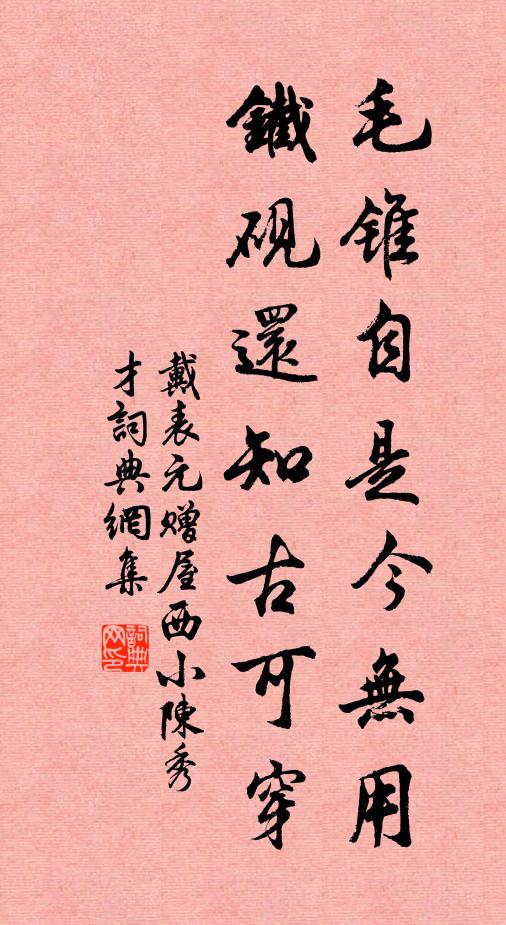 毛錐自是今無用
鐵硯還知古可穿
戴表元赠屋西小陳秀
才詞典網集
詞典
网印